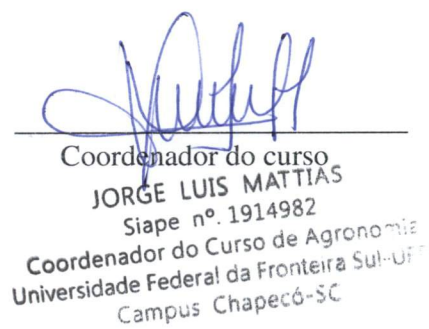 Coordenador do curso
JORGE LUIS MATTIAS
Siape nº. 1914982
Coordenador do Curso de Agronomia
Universidade Federal da Fronteira Sul-UFF
Campus Chapecó-SC